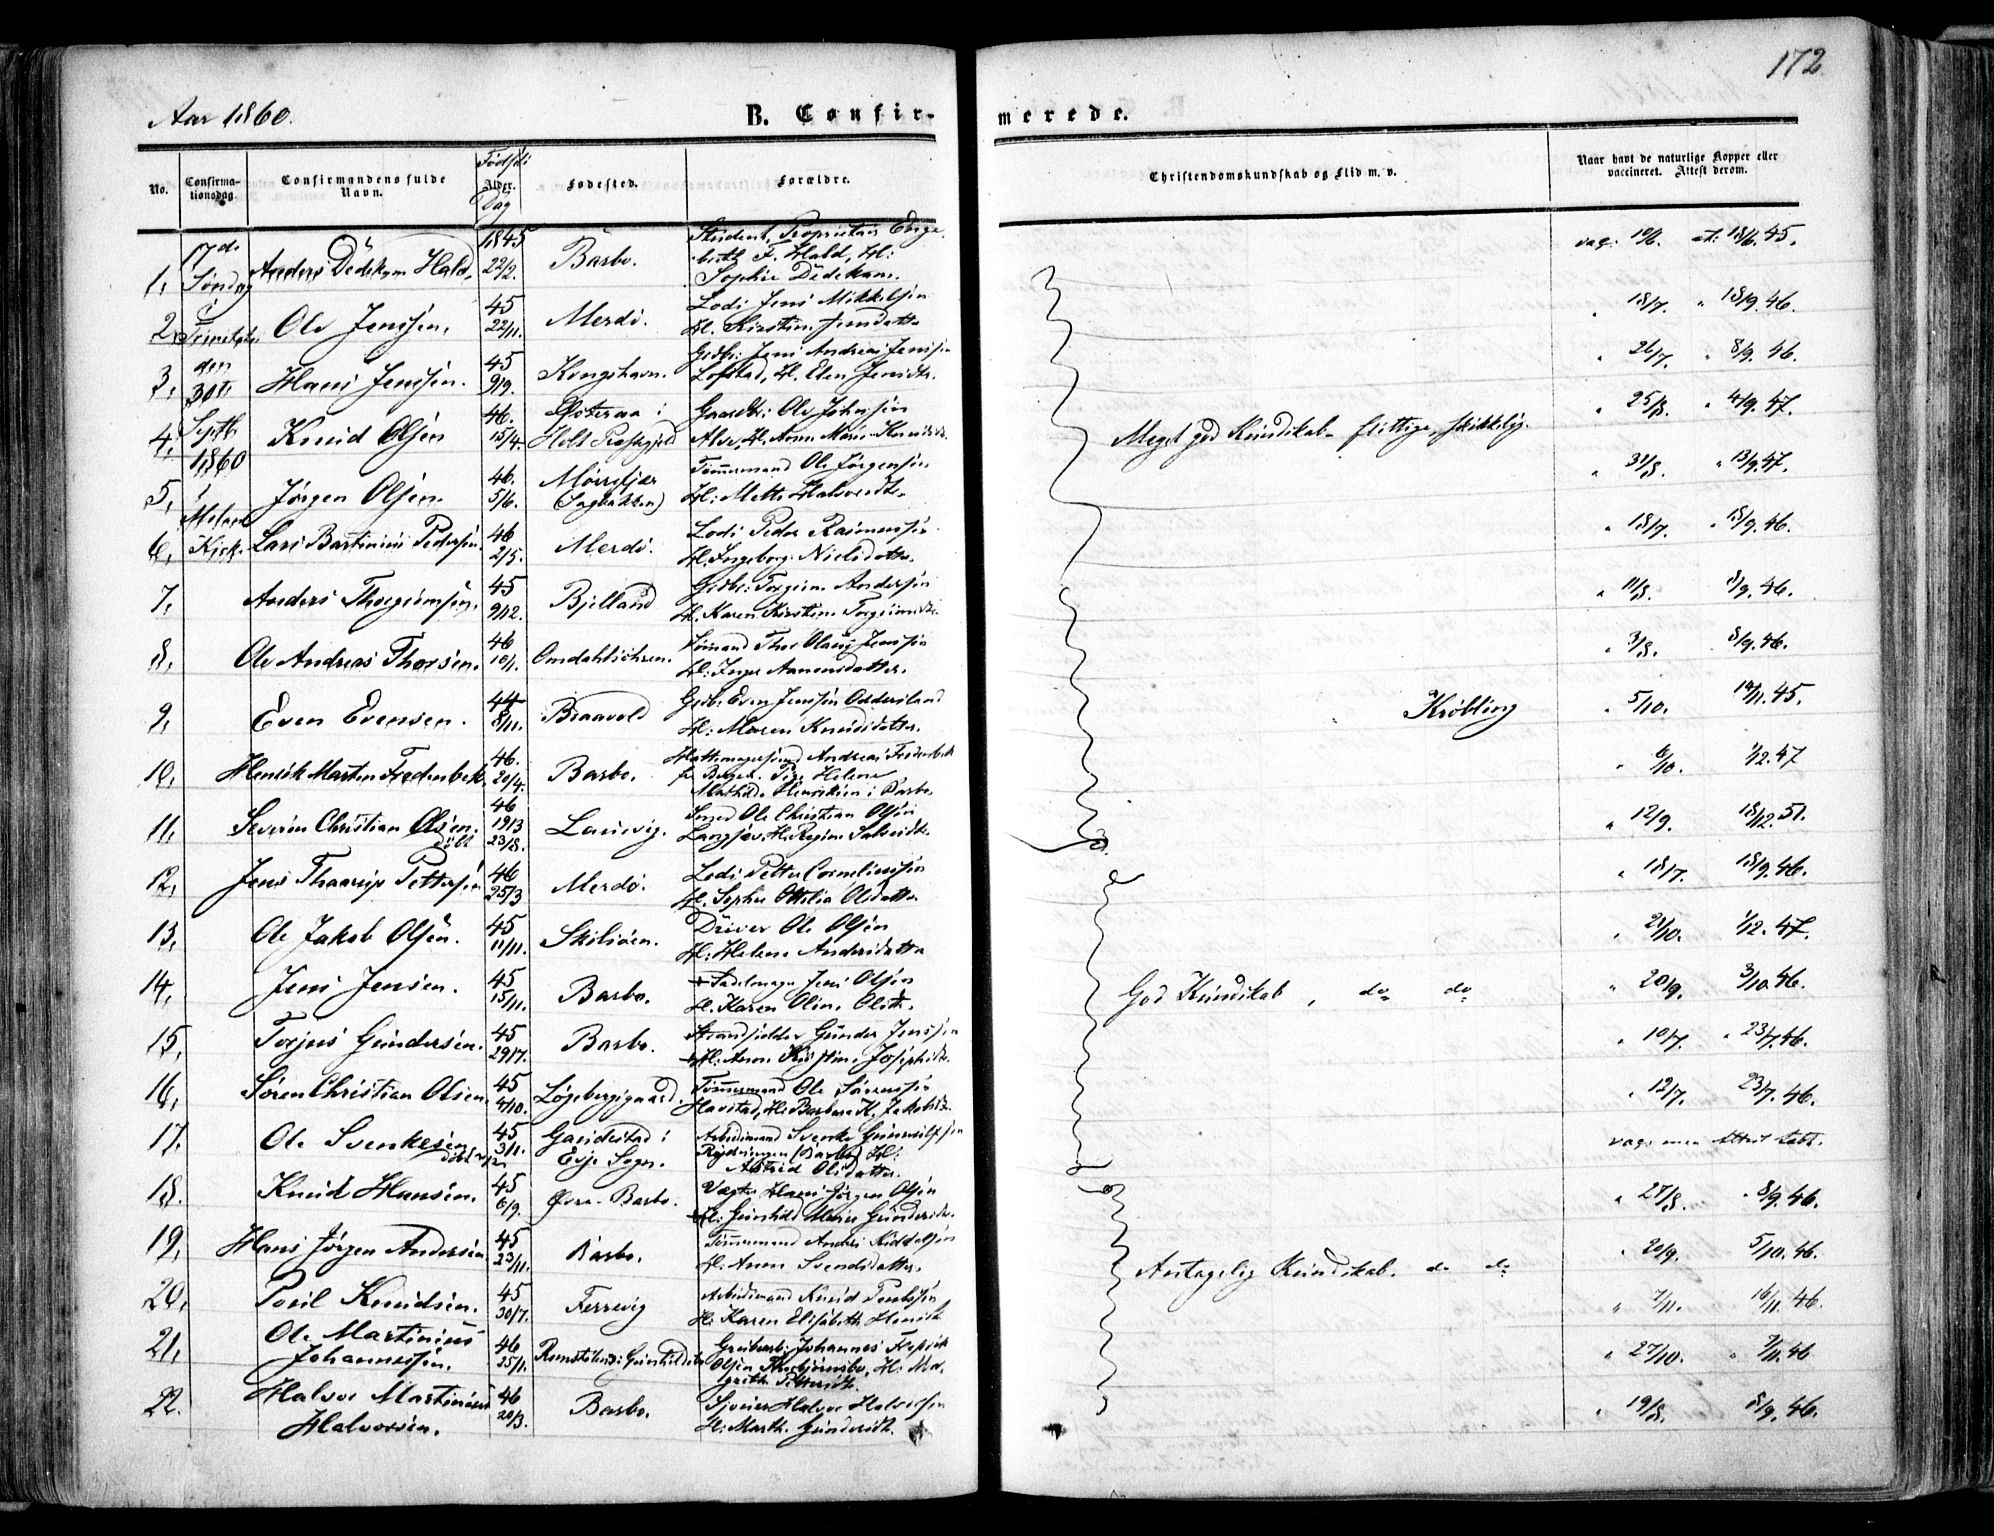 172
Aar 1860.
B. Confir-
merede.
No.
Confirma-
tionsdag.
Confirmandens fulde
Navn.
Føds.
Alder.
Dag
Fødested.
Forældre.
Christendomskundskab og Flid m. v.
Naar havt de naturlige Kopper eller
vaccineret. Attest derom.
17de
Søndag
Trinitatis
den
30te
Septb
1860
i
Kirk.
1, Anders Dedekam Hald, 1845 22/2. Barbo. Student, Proprietair Enge
breth F. Hald, H:
Sophie Dedekam. vac: 10/6. at: 18/6. 45.
2, Ole Jenssen, 45 22/11. Merdö. Lods Jens Mikkelsen
H. Kirstine Jensdatter 18/7. " 18/9. 46.
3, Hans Jenssen. 45 9/9. Kongshavn. Grdbr: Jens Andreas Jenssen
Lofstad, H. Elen Jensdtr. " 26/7. " 8/9. 46.
4, Knud Olsen 46. 15/4. Østeraa i
Holt Præstegjeld Gaardbr: Ole Johnsen
Alve, H. Anne Marie Knudsdr. Meget god Kundskab - flittige, skikkelig. " 25/8. " 4/9. 47.
5, Jørgen Olsen. 46. 5/6. Mørefjær
(Sagbakken) Tömmermand Ole Jørgensen
H: Mette Halvorsdtr. " 31/8. " 13/9. 47.
6, Lars Bastinius Pedersen. 46 2/5. Merdö. Lods Peder Rasmussen
H. Ingeborg Nielsdatter " 18/7. " 18/9. 46.
7, Anders Thorgrimsen. 45 9/12. Bjelland Grdbr: Torgrim Andersen
H. Karen Kirstine Torgrimsdtr. " 11/8. 8/9. 46.
8, Ole Andreas Thorsen. 46 10/1. Omdahlsöhren. Sömand Thor Olaus Jenssen
H: Inger Aanensdatter. " 3/8. 8/9. 46.
9, Even Evensen. 44 8/11. Braavold Grdbr Even Jenssen Oddersland
H: Maren Knudsdatter. Kröbling " 5/10. 19/11. 45.
10, Henrik Marten Fredenbek. 46. 20/4. Barbo. Hattemagersvend Andreas Fredenbek
fr. Bergen. Pige Helene
Mathilde Henriksen i Barbo " 6/10. 1/2. 47
11, Severin Christian Olsen. 46 19/3
döbt 23/8. Laurvig. Smed Ole Christian Olsen
Langsæv, H. Regine Salvesdtr. " 12/9. 18/12. 51.
12, Jens Thaarup Pettersen 46 25/3 Merdö. Lods Petter Corneliussen
H. Sophie Ottilia Olsdatter " 18/7. 18/9. 46.
13, Ole Jakob Olsen. 45 11/11. Skilsöen. Driver Ole Olsen
H: Helene Andersdatter " 21/10. 1/2. 47.
14, Jens Jensen. 45 15/11. Barbo. Sadelmager Jens Olsen
H. Karen Oline Olsdtr. God Kundskab, do do " 20/9. 3/10. 46.
15, Torjus Gundersen. 45 29/7. Barbo. Strandsidder Gunder Jenssen
H: Anne Kirstine Josephsdtr. " 10/7. " 23/7. 46.
16, Sören Christian Olsen. 45 4/10. Løgebergsgaard. Tömmermand Ole Sørenssen
Havstad, H. Barbara K. Jakobsdtr. " 12/7. 23/7. 46.
17. Ole Svenkesen 45 3/11. Gaudestad i
Evje Sogn. Arbeidsmand Svenke Gunnulfsen
Rydningen (Barbo) H:
Astrid Olsdatter. vac: men Attest tabt.
18. Knud Hansen. 45 6/9. Øvre-Barbo. Vægter Hans Jörgen Olsen
H: Gunhild Marie Gundersdtr. " 27/8. " 8/9. 46.
19, Hans Jörgen Andersen. 45 23/11. Barbo. Tömmermand Anders Kiddelsen
H. Anne Svendsdatter. " 20/9. 5/10. 46.
20, Poul Knudsen. 45 30/7. Færevig Arbeidsmand Knud Poulssen
H: Karen Elisabeth Henriksdtr Antagelig Kundskab. do do " 7/11. 16/11. 46.
21, Ole Martinius
Johannessen, 46 25/1. Johannes
Olsen Thorbjörnsbo, H: Mar
grethe Pettersdtr. " 27/10. " 7/11. 46
22. Halvor Martinius
Halvorsen. 46 20/3. Barbo. Halvor Halvorsen
H: Marthe Gundersdtr. " 19/8. 8/9. 46.